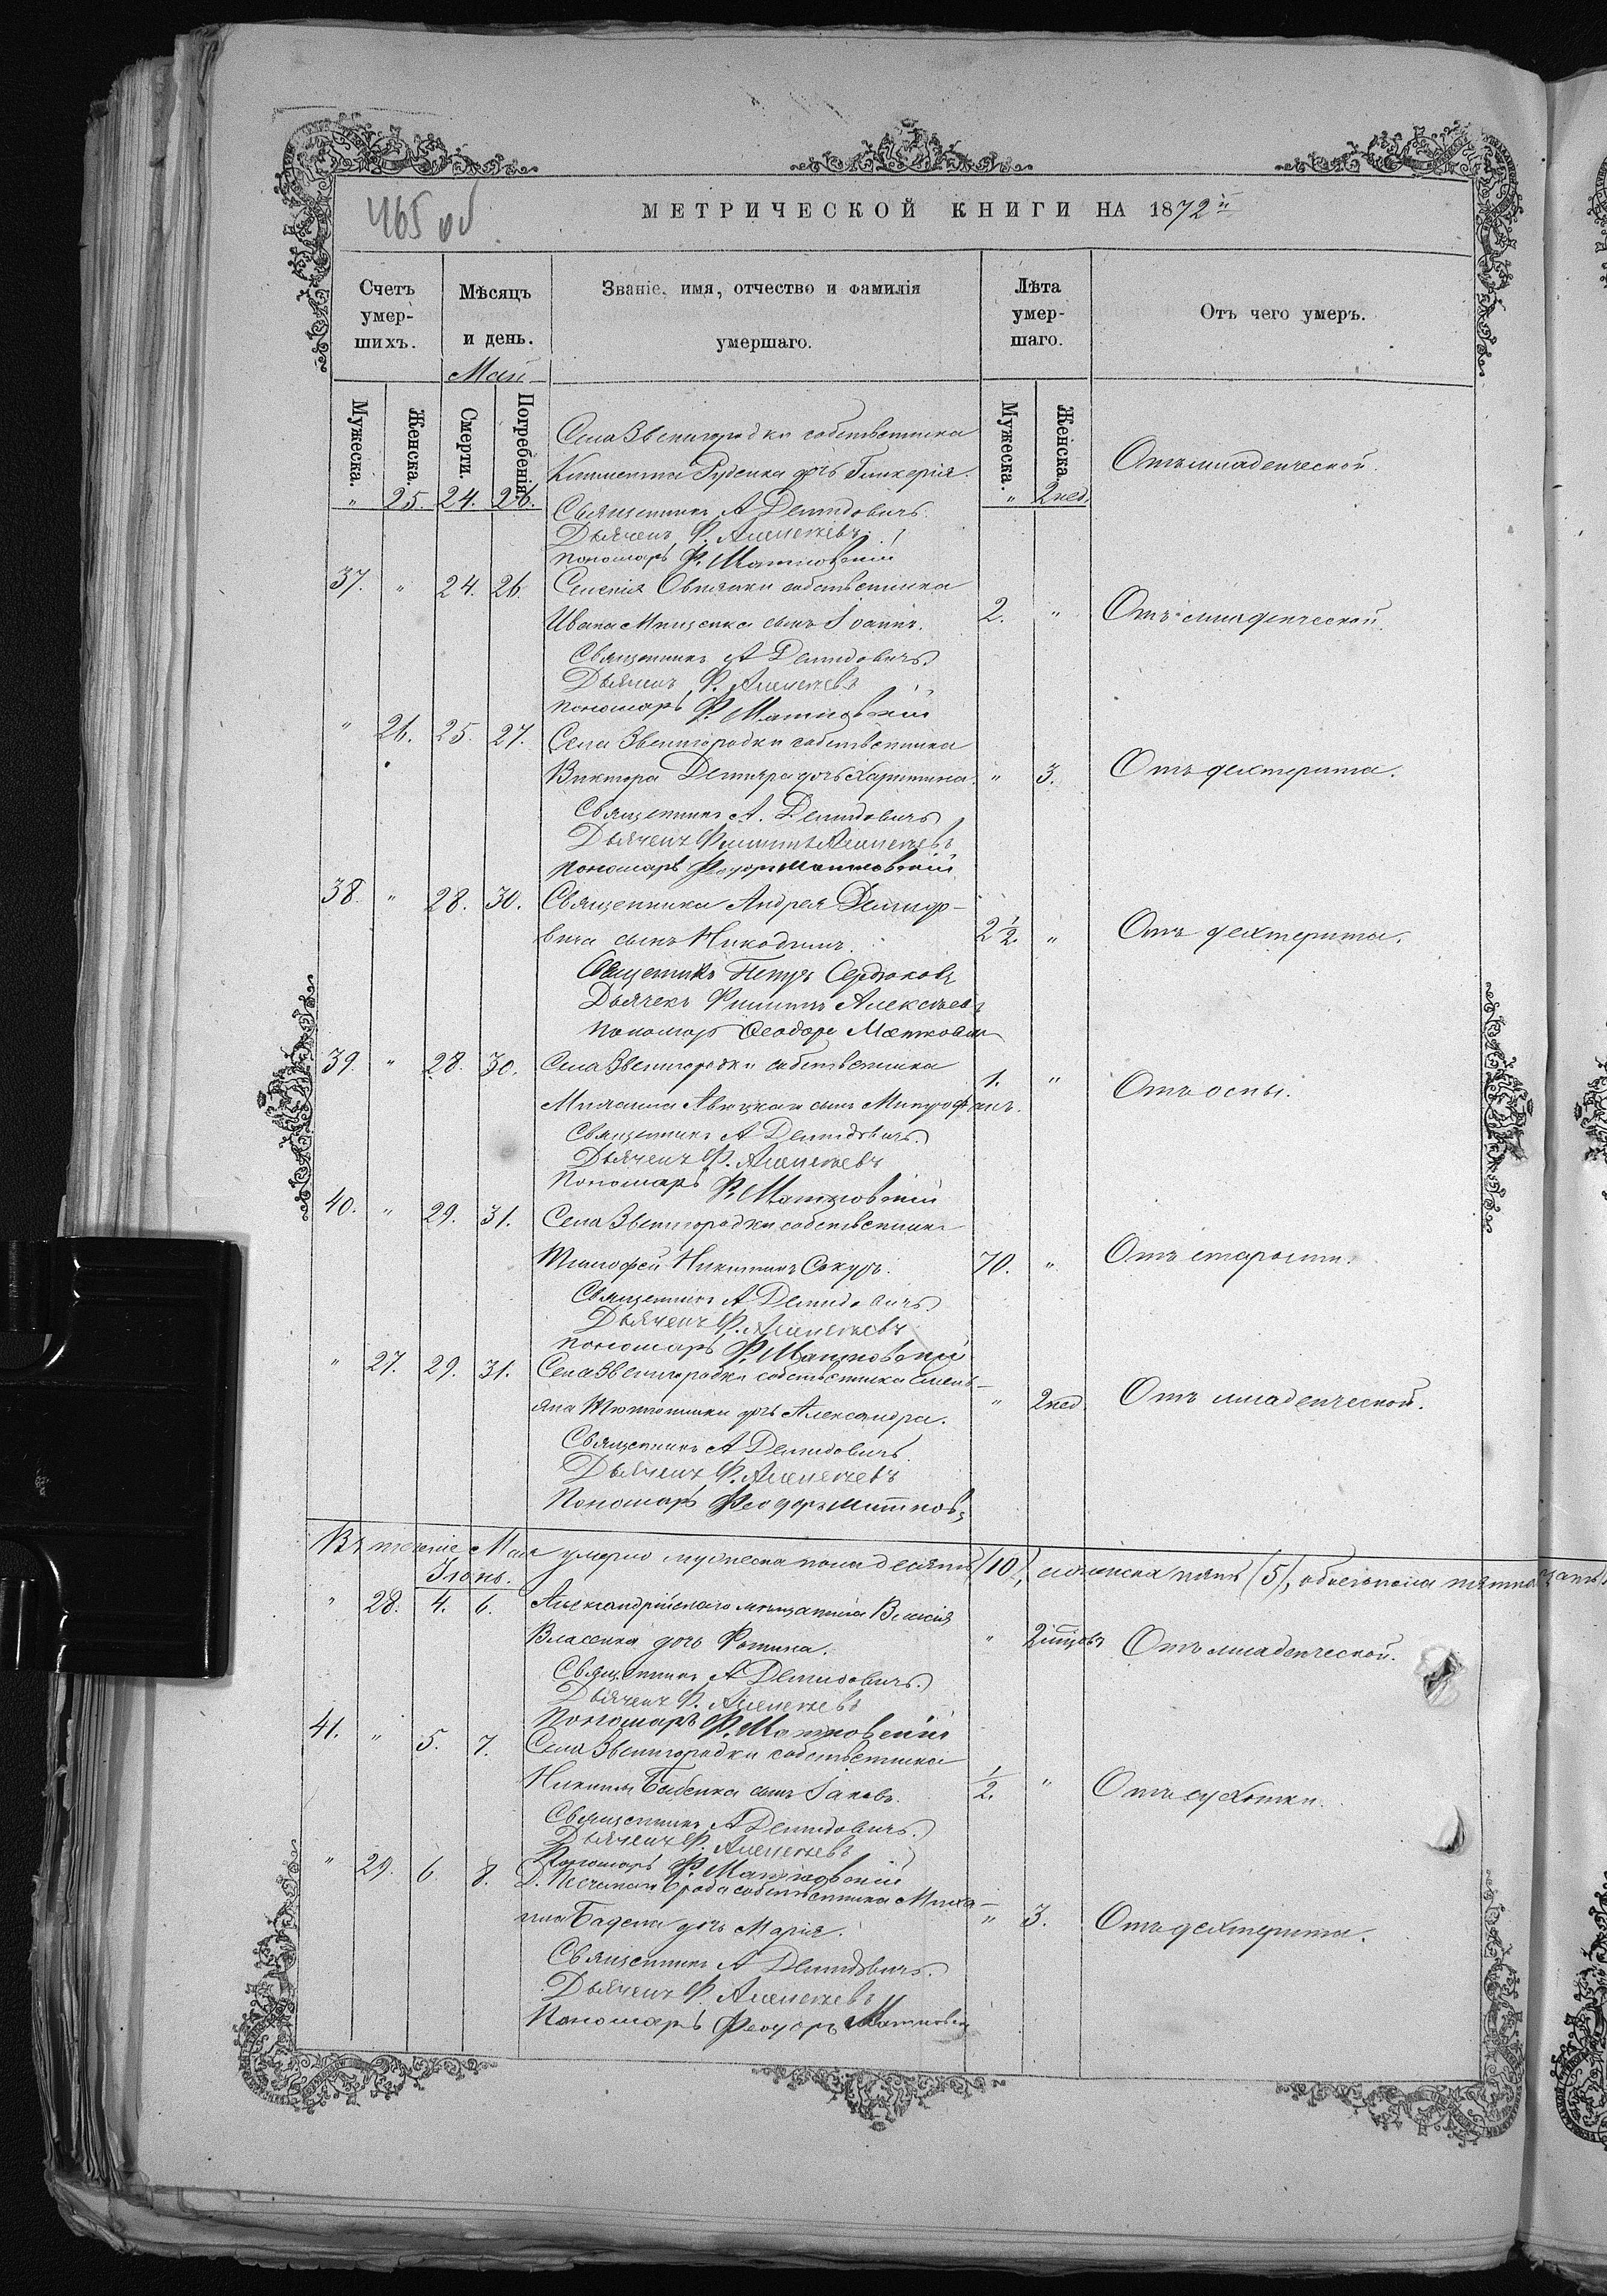 465 об
МЕТРИЧЕСКОЙ КНИГИ НА 1872й
Счетъ умер-шихъ.
Мѣсяцъ и день.
Званіе, имя, отчество и фамилія умершаго.
Лѣта умер-шаго.
Отъ чего умеръ.
Май
Мужеска. Женска. Смерти. Погребенія. Мужеска. Женска.
Села Звенигородки собственника
Климента Руденка дочь Гликерія.
" 25. 24. 26. " 2 нед. Отъ младенческой.
Священникъ А Демидовичъ
Дьячекъ Ф. Алексѣевъ
Пономарь Ф. Матковскій
37. " 24. 26. Селенія Овнянки собственника
Ивана Мищенка сынъ Іоаннъ. 2. " Отъ младенческой.
Священникъ А Демидовичъ
Дьячекъ Ф. Алексѣевъ
Пономарь Ф. Матковскій
" 26. 25. 27. Села Звенигородки собственника
Виктора Дегтяра дочь Харитина. " 3. Отъ дехтерита.
Священникъ А. Демидовичъ
Дьячекъ Филиппъ Алексѣевъ
Пономарь Феодоръ Матковскій
38. " 28. 30. Священника Андрея Демидо-
вича сынъ Никодимъ. 2 1/2. " Отъ дехтерита.
Священникъ Петръ Сердюковъ
Дьячекъ Филиппъ Алексѣевъ
Пономарь Ѳеодоръ Матковскій
39. " 28. 30. Села Звенигородки собственника
сынъ Митрофанъ. 1. " Отъ оспы.
Священникъ А Демидовичъ
Дьячекъ Ф. Алексѣевъ
Пономарь Ф. Матковскій
40. " 29. 31. Села Звенигородки собственникъ
Тимофей Никитинъ Сокуръ. 70. " Отъ старости.
Священникъ А Демидовичъ
Дьячекъ Ф. Алексѣевъ
Пономарь Ф. Матковскій
" 27. 29. 31. Села Звенигородки собственника Емель-
яна дочь Александра. " 2 нед. Отъ младенческой.
Священникъ А Демидовичъ
Дьячекъ Ф. Алексѣевъ
Пономарь Феодоръ Матковъ
Въ теченіе Мая умерло мужеска пола десять (10), женска пять (5), обоего пола пятнадцать.
Іюнь.
" 28. 4. 6. Александрійскаго мѣщанина
Власенка дочь Фотина. " 2 мѣсц. Отъ младенческой.
Священникъ А Демидовичъ
Дьячекъ Ф. Алексѣевъ
Пономарь Ф. Матковскій
41. " 5. 7. Села Звенигородки собственника
Никиты Бабенка сынъ Іаковъ. 1/2. " Отъ сухотки.
Священникъ А Демидовичъ
Дьячекъ Ф. Алексѣевъ
Пономарь Ф. Матковскій
" 29. 6. 8. Д. Песчанаго Брода собственника Миха-
ила дочь Марія. " 3. Отъ дехтерита.
Священникъ А Демидовичъ
Дьячекъ Ф. Алексѣевъ
Пономарь Феодоръ Матковскій